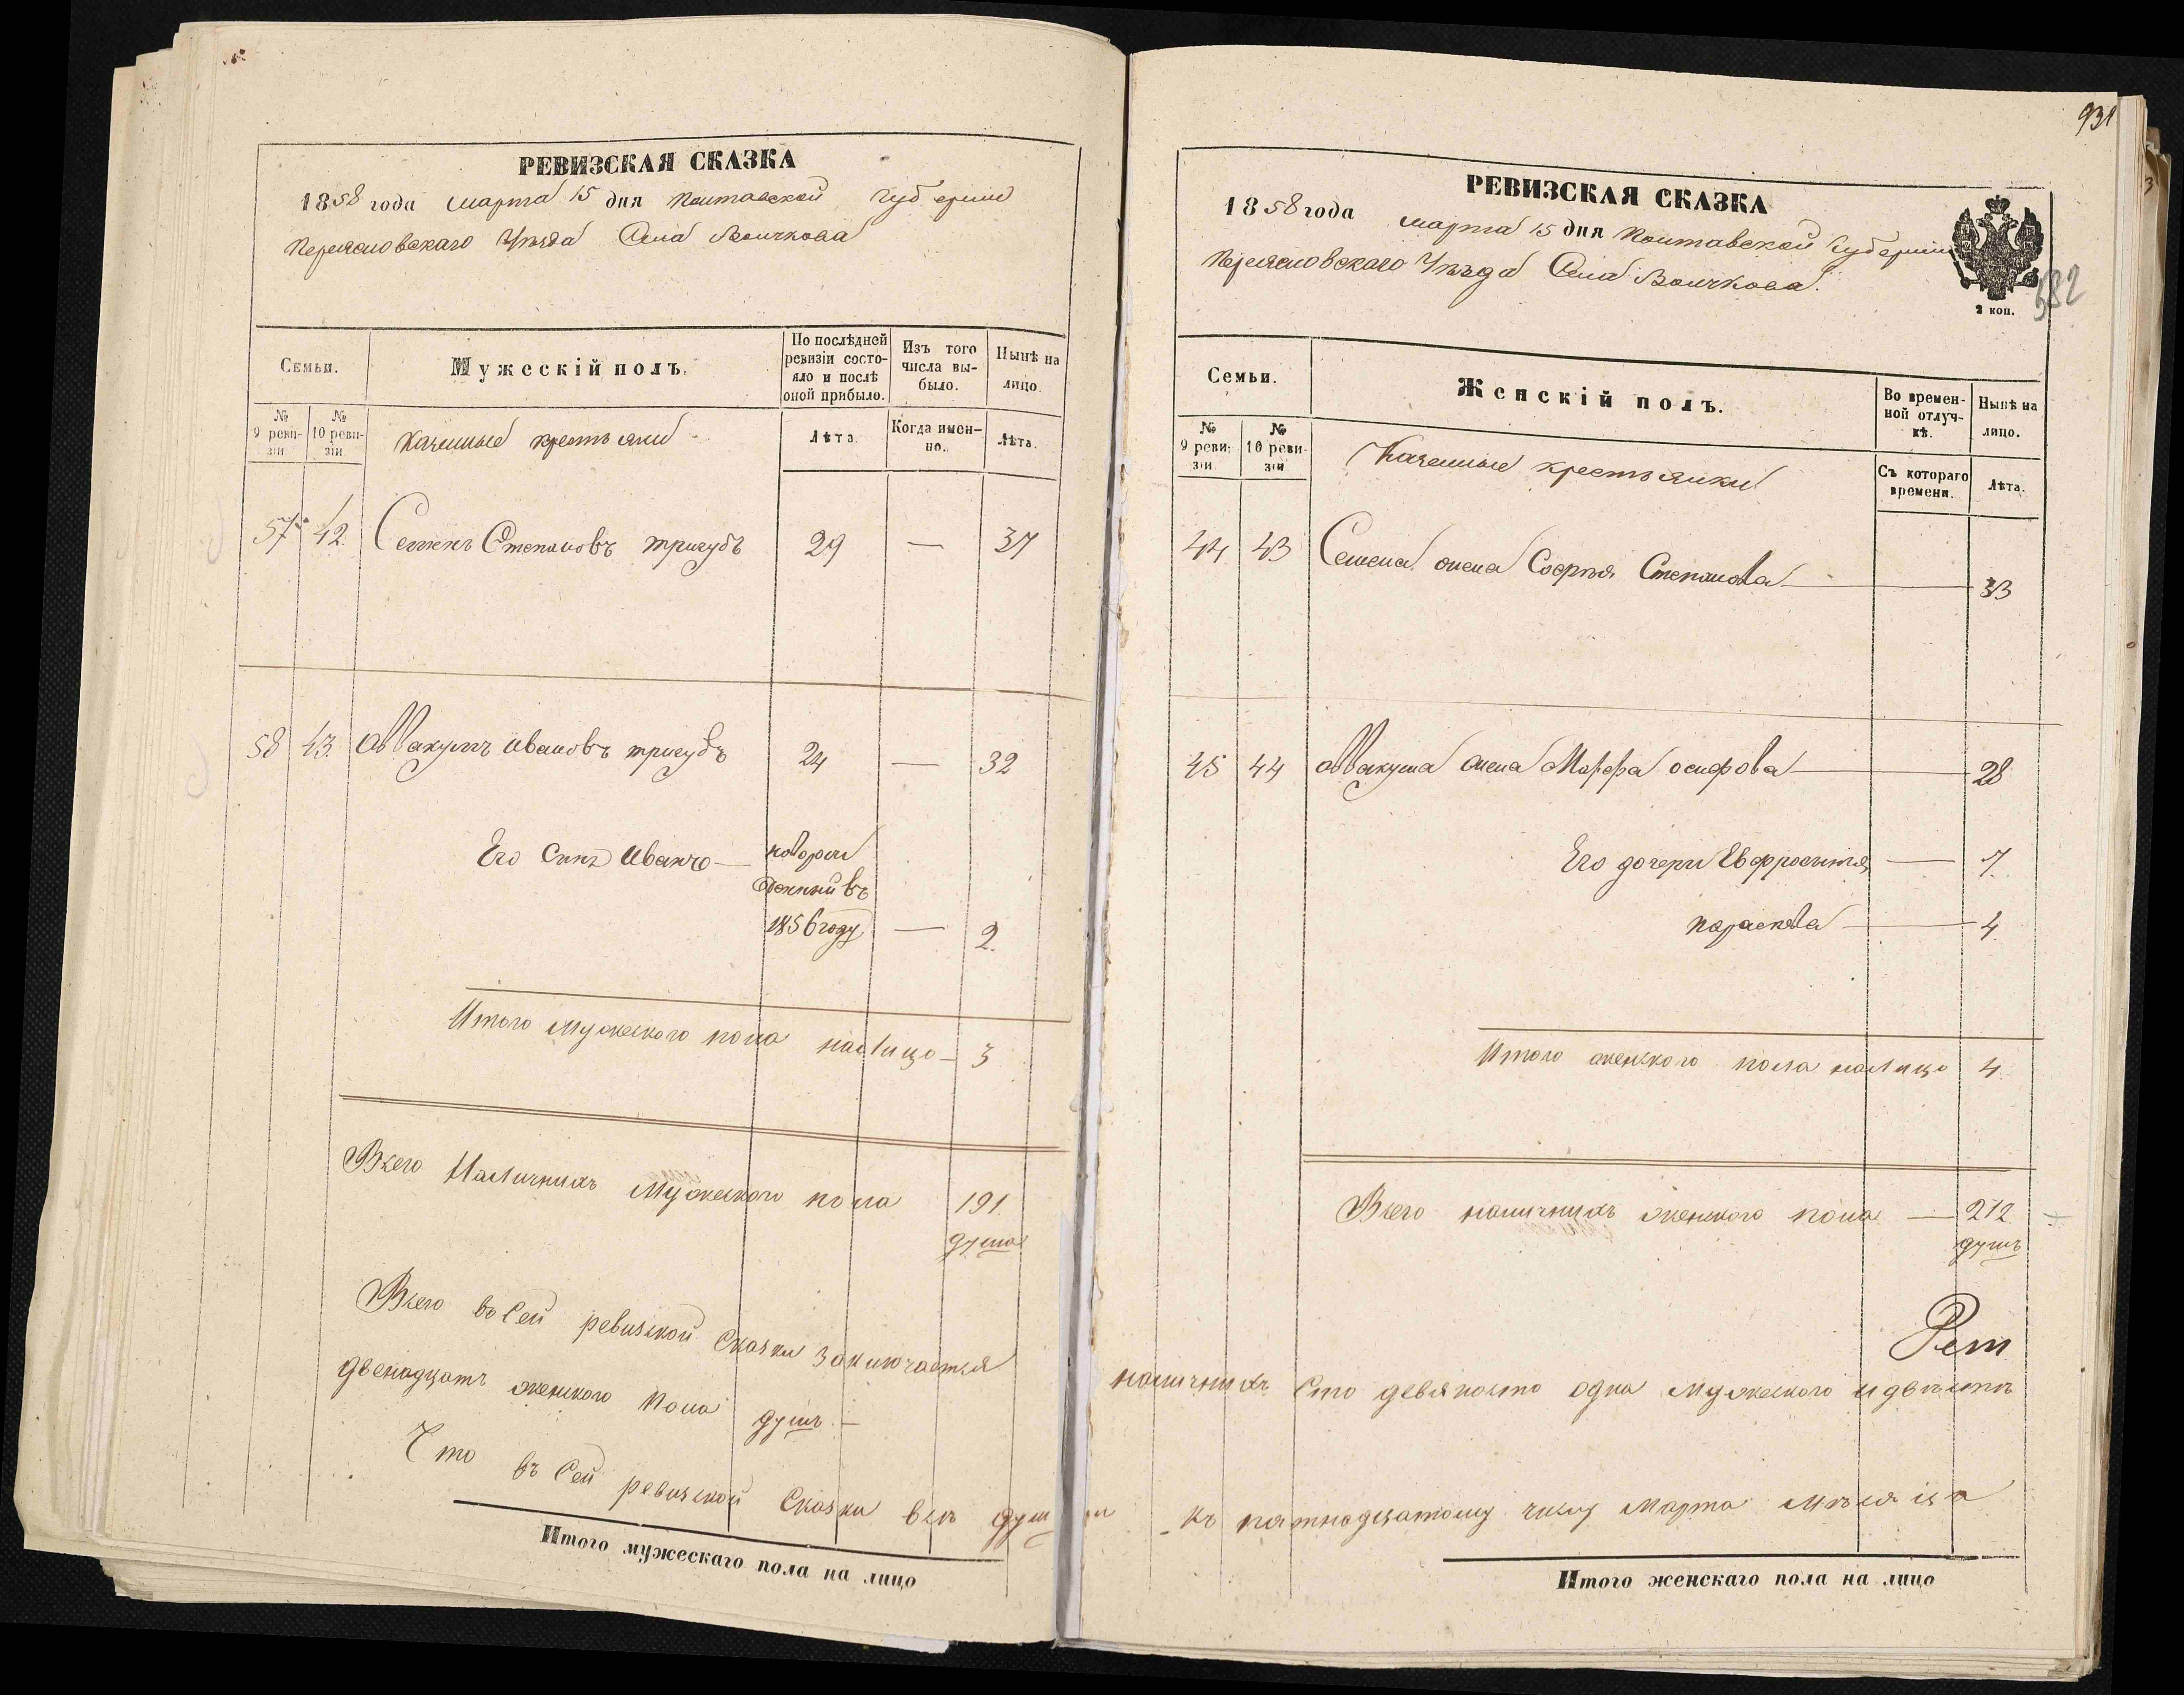 РЕВИЗСКАЯ СКАЗКА
1858 года марта 15 дня Полтавской Губернии
Переясловскаго Уѣзда Села Волчкова
Семьи.
Мужескій полъ.
По послѣдней ревизіи состояло и послѣ оной прибыло.
Изъ того числа выбыло.
Нынѣ на лицо.
№ 9 ревизіи
№ 10 ревизіи
Казенные крестьяни
Лѣта.
Когда именно.
Лѣта.
57 42 Семенъ Степановъ тригубъ 29 — 37
58 43 Аввакумъ Ивановъ тригубъ 24 — 32
Его Сынъ Иванъ — новорож
денный въ
1856 году — 2
Итого мужеского пола налицо — 3
Всего Наличныхъ Мужеского пола 191
душа
Всего въ Сей ревизской Сказки заключается
двенадцать женского пола душъ. —
Что въ Сей ревизской Сказки всѣ души
Итого мужескаго пола на лицо
931
РЕВИЗСКАЯ СКАЗКА
1858 года марта 15 дня Полтавской Губернии
Переясловскаго Уѣзда Села Волчкова.
2 коп.
582
Семьи.
Женскій полъ.
Во временной отлучкѣ.
Нынѣ на лицо.
№ 9 ревизіи
№ 10 ревизіи
Казенные крестьянки
Съ котораго времени.
Лѣта.
44 43 Семена жена Софья Степанова — 33
45 44 Аввакума жена Марфа осифова — 28
Его дочери Евфросиния — 7
параскева — 4
Итого женского пола налицо 4
Всего наличныхъ женского пола — 212
душъ
наличныхъ Сто девяносто одна мужеского и двѣсти
къ пятнадцатому числу Марта мѣсяца
Итого женскаго пола на лицо